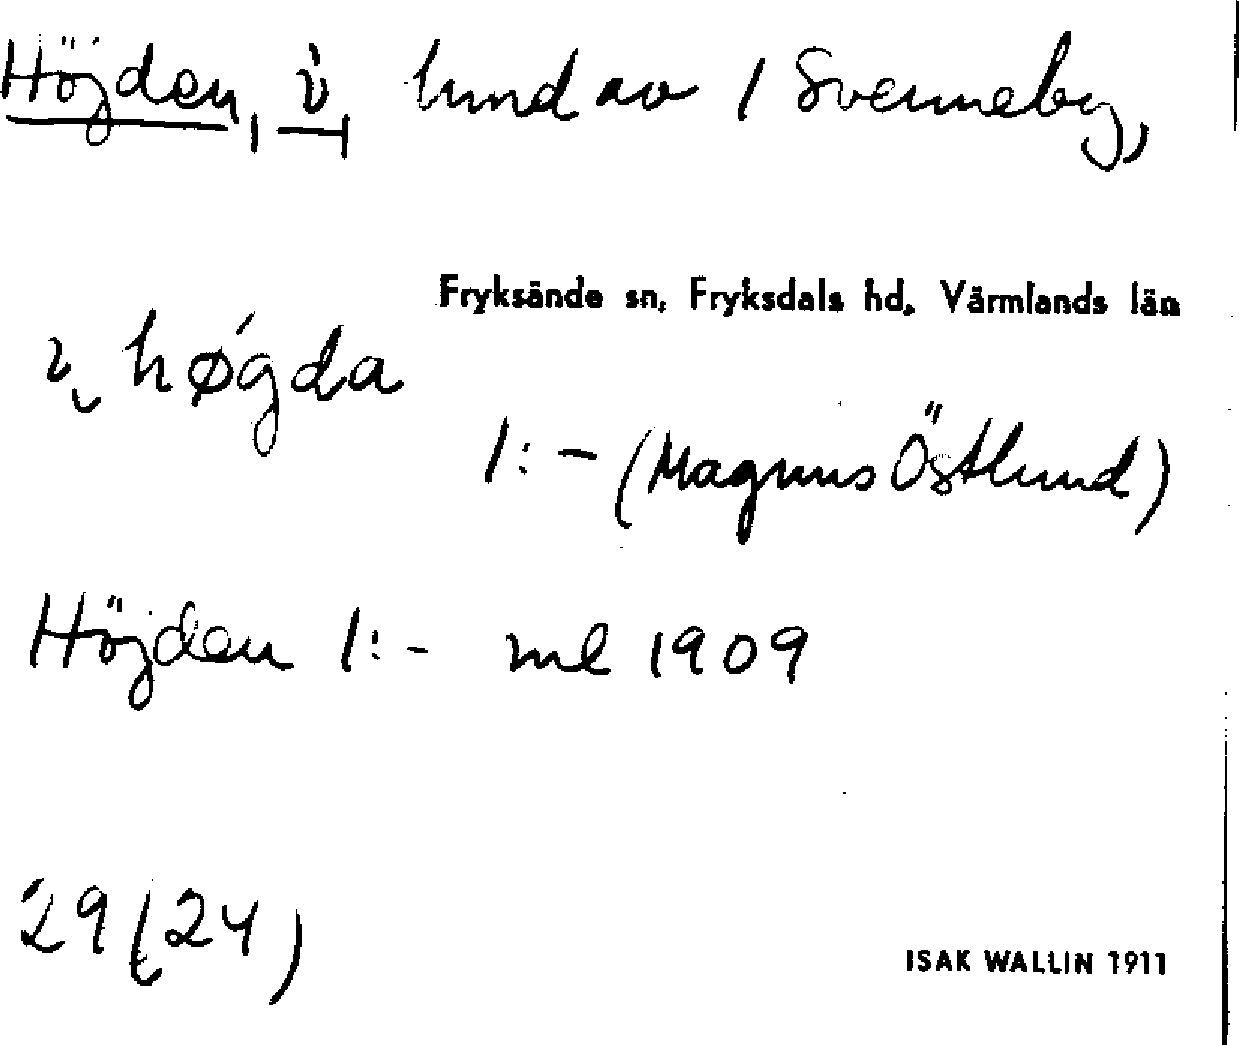 Höjden, i, hmd av 1 Svenneby,
Fryksände sn, Fryksdals hd, Värmlands län
i, høgda
1:- (Magnus Östlund)
Höjden 1:- ml 1909
29 (24)
ISAK WALLIN 1911